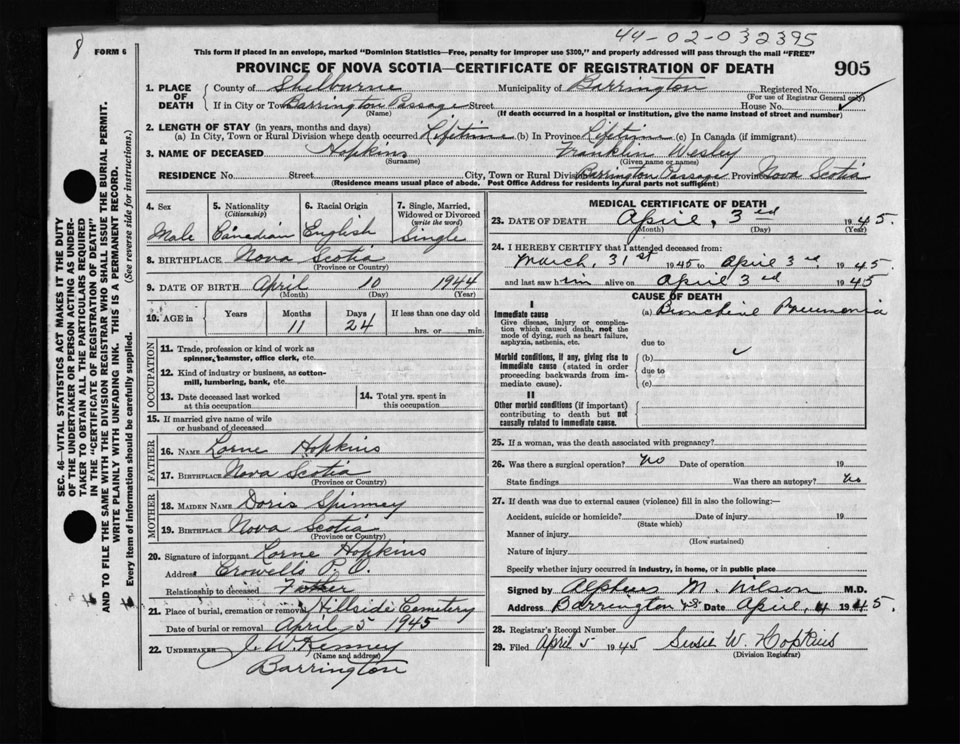 44-02-032395
8
FORM 6
This form if placed in an envelope, marked "Dominion Statistics—Free, penalty for improper use $300," and properly addressed will pass through the mail "FREE"
PROVINCE OF NOVA SCOTIA—CERTIFICATE OF REGISTRATION OF DEATH 905
1. PLACE OF DEATH County of Shelburne Municipality of Barrington Registered No.
(For use of Registrar General only)
If in City or Town Barrington Passage Street House No.
(Name) (If death occurred in a hospital or institution, give the name instead of street and number)
2. LENGTH OF STAY (in years, months and days)
(a) In City, Town or Rural Division where death occurred Lifetime (b) In Province Lifetime (c) In Canada (if immigrant)
3. NAME OF DECEASED Hopkins Franklin Wesley
(Surname) (Given name or names)
RESIDENCE No. Street City, Town or Rural Divis Barrington Passage Province Nova Scotia
(Residence means usual place of abode. Post Office Address for residents in rural parts not sufficient)
SEC. 46—VITAL STATISTICS ACT MAKES IT THE DUTY
OF THE UNDERTAKER OR PERSON ACTING AS UNDER-
TAKER TO OBTAIN ALL THE PARTICULARS REQUIRED
IN THE "CERTIFICATE OF REGISTRATION OF DEATH"
AND TO FILE THE SAME WITH THE DIVISION REGISTRAR WHO SHALL ISSUE THE BURIAL PERMIT.
WRITE PLAINLY WITH UNFADING INK. THIS IS A PERMANENT RECORD.
Every item of information should be carefully supplied. (See reverse side for instructions.)
4. Sex 5. Nationality 6. Racial Origin 7. Single, Married,
(Citizenship) Widowed or Divorced
(write the word)
Male Canadian English Single
8. BIRTHPLACE Nova Scotia
(Province or Country)
9. DATE OF BIRTH April 10 1944
(Month) (Day) (Year)
10. AGE in Years Months Days If less than one day old
11 24 hrs. or min.
OCCUPATION
11. Trade, profession or kind of work as
spinner, teamster, office clerk, etc.
12. Kind of industry or business, as cotton-
mill, lumbering, bank, etc.
13. Date deceased last worked
at this occupation
14. Total yrs. spent in
this occupation
15. If married give name of wife
or husband of deceased
FATHER
16. NAME Lorne Hopkins
17. BIRTHPLACE Nova Scotia
(Province or Country)
MOTHER
18. MAIDEN NAME Doris Spinney
19. BIRTHPLACE Nova Scotia
(Province or Country)
20. Signature of informant Lorne Hopkins
Address Crowells P.O.
Relationship to deceased Father
21. Place of burial, cremation or removal Hillside Cemetery
Date of burial or removal April 5 1945
22. UNDERTAKER J. W. Kenney
(Name and address)
Barrington
MEDICAL CERTIFICATE OF DEATH
23. DATE OF DEATH April, 3rd 1945.
(Month) (Day) (Year)
24. I HEREBY CERTIFY that I attended deceased from:
March, 31st 1945 to April 3rd, 1945.
and last saw him alive on April 3rd 1945
CAUSE OF DEATH
I
Immediate cause (a) Pneumonia
Give disease, injury or complica-
tion which caused death, not the
mode of dying, such as heart failure,
asphyxia, asthenia, etc.
due to
Morbid conditions, if any, giving rise to
immediate cause (stated in order
proceeding backwards from im-
mediate cause).
(b)
due to
(c)
II
Other morbid conditions (if important)
contributing to death but not
causally related to immediate cause.
25. If a woman, was the death associated with pregnancy?
26. Was there a surgical operation? No Date of operation 19
State findings Was there an autopsy? No
27. If death was due to external causes (violence) fill in also the following:—
Accident, suicide or homicide? Date of injury 19
(State which)
Manner of injury
(How sustained)
Nature of injury
Specify whether injury occurred in industry, in home, or in public place
Signed by Alpheus M. Wilson M.D.
Address Barrington N.S. Date April, 4 1945.
28. Registrar's Record Number
29. Filed April 5 1945 W. Hopkins
(Division Registrar)